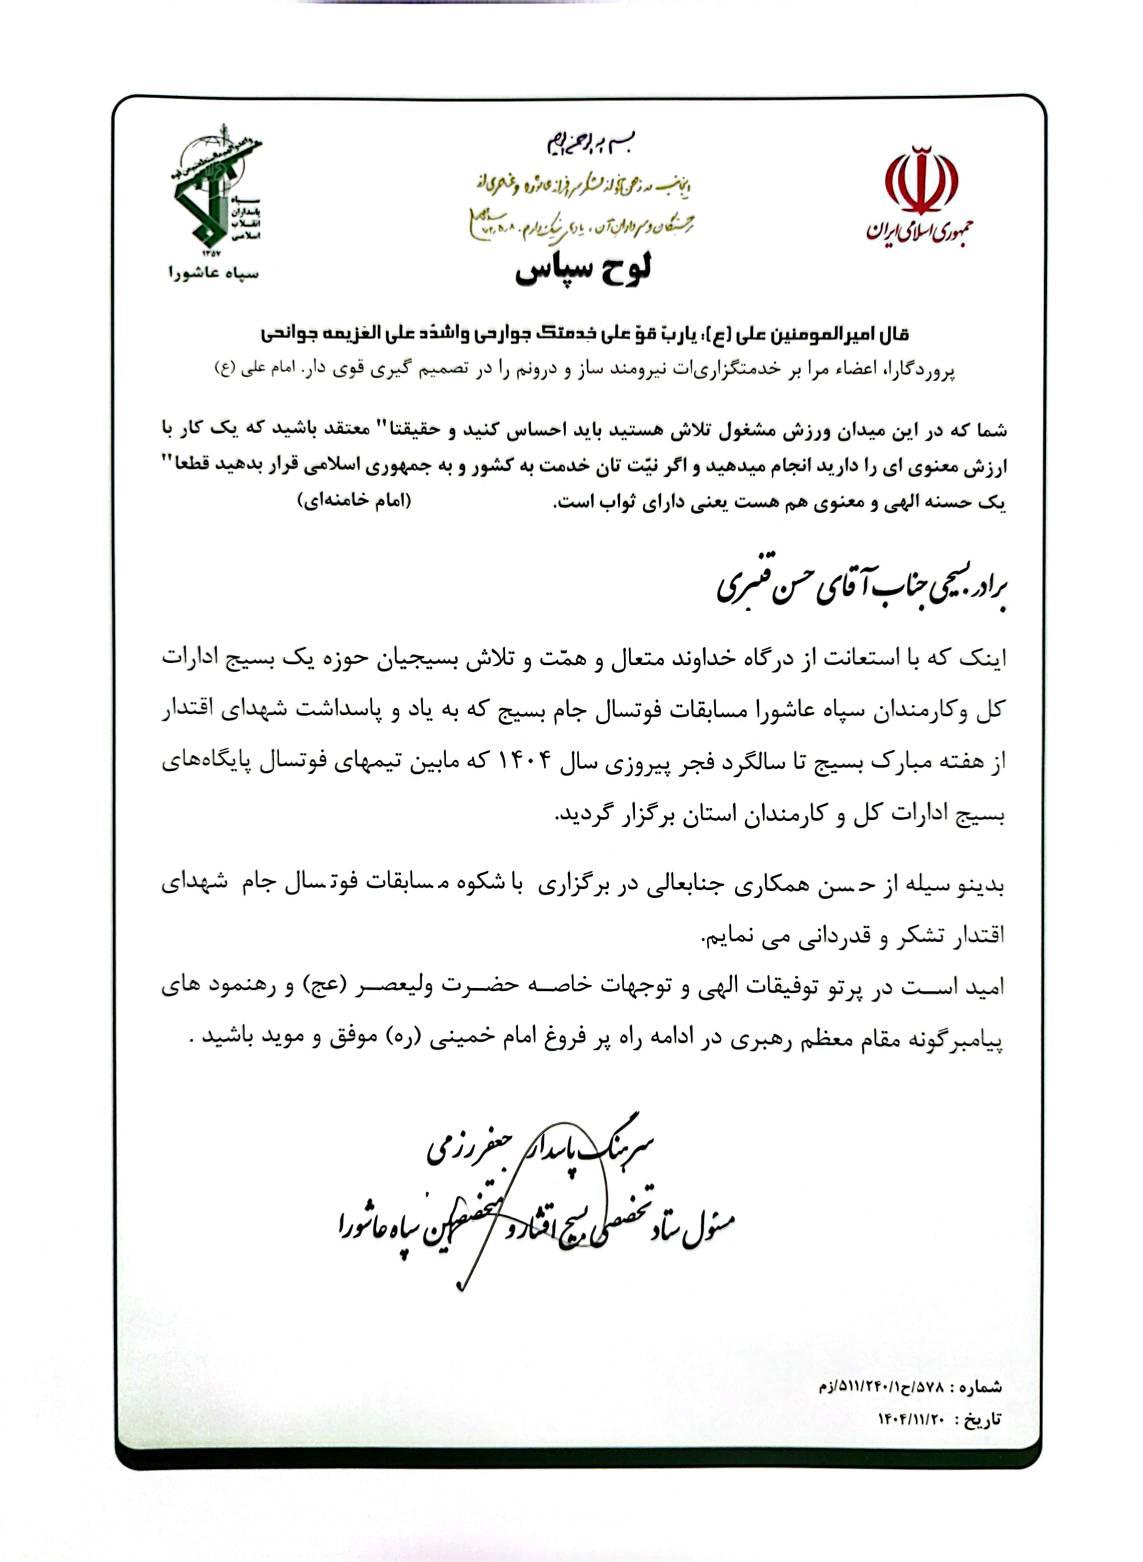 بسم الله الرحمن الرحیم
جمهوری اسلامی ایران
سپاه
پاسداران
انقلاب
اسلامی
۱۳۵۷
سپاه عاشورا
لوح سپاس
قال امیرالمومنین علی (ع): یاربّ قوّ علی خدمتک جوارحی واشدّد علی العَزیمه جوانحی
پروردگارا، اعضاء مرا بر خدمتگزاری‌ات نیرومند ساز و درونم را در تصمیم گیری قوی دار. امام علی (ع)
شما که در این میدان ورزش مشغول تلاش هستید باید احساس کنید و حقیقتا" معتقد باشید که یک کار با
ارزش معنوی ای را دارید انجام میدهید و اگر نیّت تان خدمت به کشور و به جمهوری اسلامی قرار بدهید قطعا"
یک حسنه الهی و معنوی هم هست یعنی دارای ثواب است. (امام خامنه‌ای)
برادر بسیجی جناب آقای حسن قنبری
اینک که با استعانت از درگاه خداوند متعال و همّت و تلاش بسیجیان حوزه یک بسیج ادارات
کل وکارمندان سپاه عاشورا مسابقات فوتسال جام بسیج که به یاد و پاسداشت شهدای اقتدار
از هفته مبارک بسیج تا سالگرد فجر پیروزی سال ۱۴۰۴ که مابین تیمهای فوتسال پایگاه‌های
بسیج ادارات کل و کارمندان استان برگزار گردید.
بدینو سیله از حسن همکاری جنابعالی در برگزاری با شکوه مسابقات فوتسال جام شهدای
اقتدار تشکر و قدردانی می نمایم.
امید است در پرتو توفیقات الهی و توجهات خاصه حضرت ولیعصر (عج) و رهنمود های
پیامبرگونه مقام معظم رهبری در ادامه راه پر فروغ امام خمینی (ره) موفق و موید باشید .
سرهنگ پاسدار جعفر رزمی
مسئول ستاد تخصصی بسیج اقشار و متخصصین سپاه عاشورا
شماره : ۵۷۸/ح۵۱۱/۲۴۰/۱/زم
تاریخ : ۱۴۰۴/۱۱/۲۰